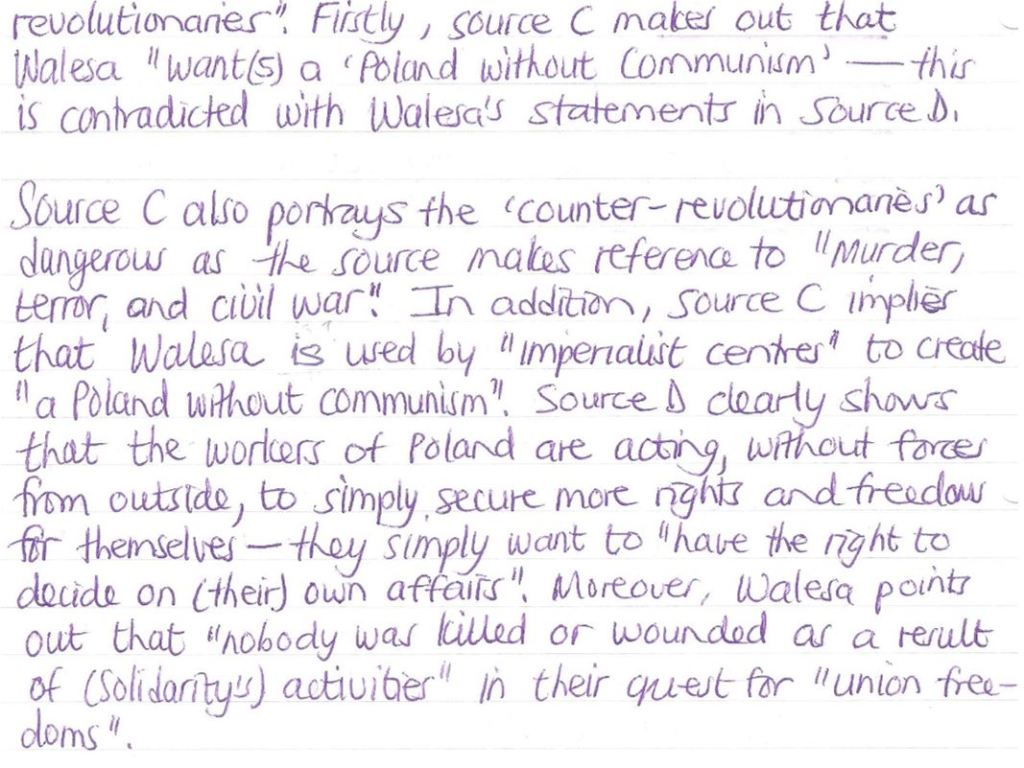 revolutionaries". Firstly, source C makes out that
Walesa "want(s) a 'Poland without Communism' — this
is contradicted with Walesa's statements in Source D.
Source C also portrays the 'counter-revolutionaries' as
dangerous as the source makes reference to "Murder,
terror, and civil war". In addition, source C implies
that Walesa is used by "imperialist centres" to create
"a Poland without communism". Source D clearly shows
that the workers of Poland are acting, without forces
from outside, to simply secure more rights and freedom
for themselves — they simply want to "have the right to
decide on (their) own affairs". Moreover, Walesa points
out that "nobody was killed or wounded as a result
of (Solidarity's) activities" in their quest for "union free-
doms".